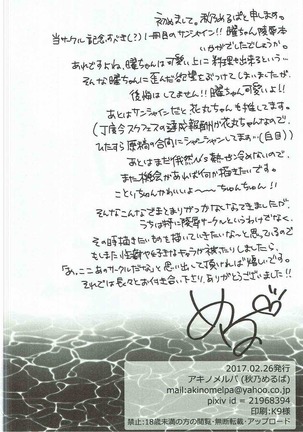 初めまして。秋乃めるぱと申します。
当サークル記念すべき(?)1冊目のサンシャイン!!曜ちゃん陵辱本
いかがでしたでしょうか。
あれですよね、曜ちゃんは可愛い上に料理も出来るという…
そんな曜ちゃんに歪んだ欲望をぶつけてしまいましたが、
後悔はしてません!!曜ちゃん可愛いよ!!
あとはサンシャインだと花丸ちゃんを推してます。
(丁度今スクフェスの達成報酬が花丸ちゃんなので、
ひたすら原稿の合間にシャンシャンしてます…(白目))
あとはまだ俄然μ's熱が冷めないので、
また機会があれば何か描きたいです。
ことりちゃんかわいいよ〜ちゅんちゅん!!
そんなこんなでまとまりがつかなくなってきましたが、
うちは特に陵辱サークルというわけでなく、
その時描きたいものを描いていきたいな〜と思っているので
もしまた性癖や好きなキャラが被ったりしましたら、
「あ、ここあのサークルだな」と思い出して頂ければ嬉しいです。
それでは長々とお付き合い下さり、ありがとうございました!!
めるぱ
2017.02.26発行
アキノメルパ (秋乃めるぱ)
mail:akinomelpa@yahoo.co.jp
pixiv id = 21968394
印刷:K9様
禁止:18歳未満の方の閲覧・無断転載・アップロード